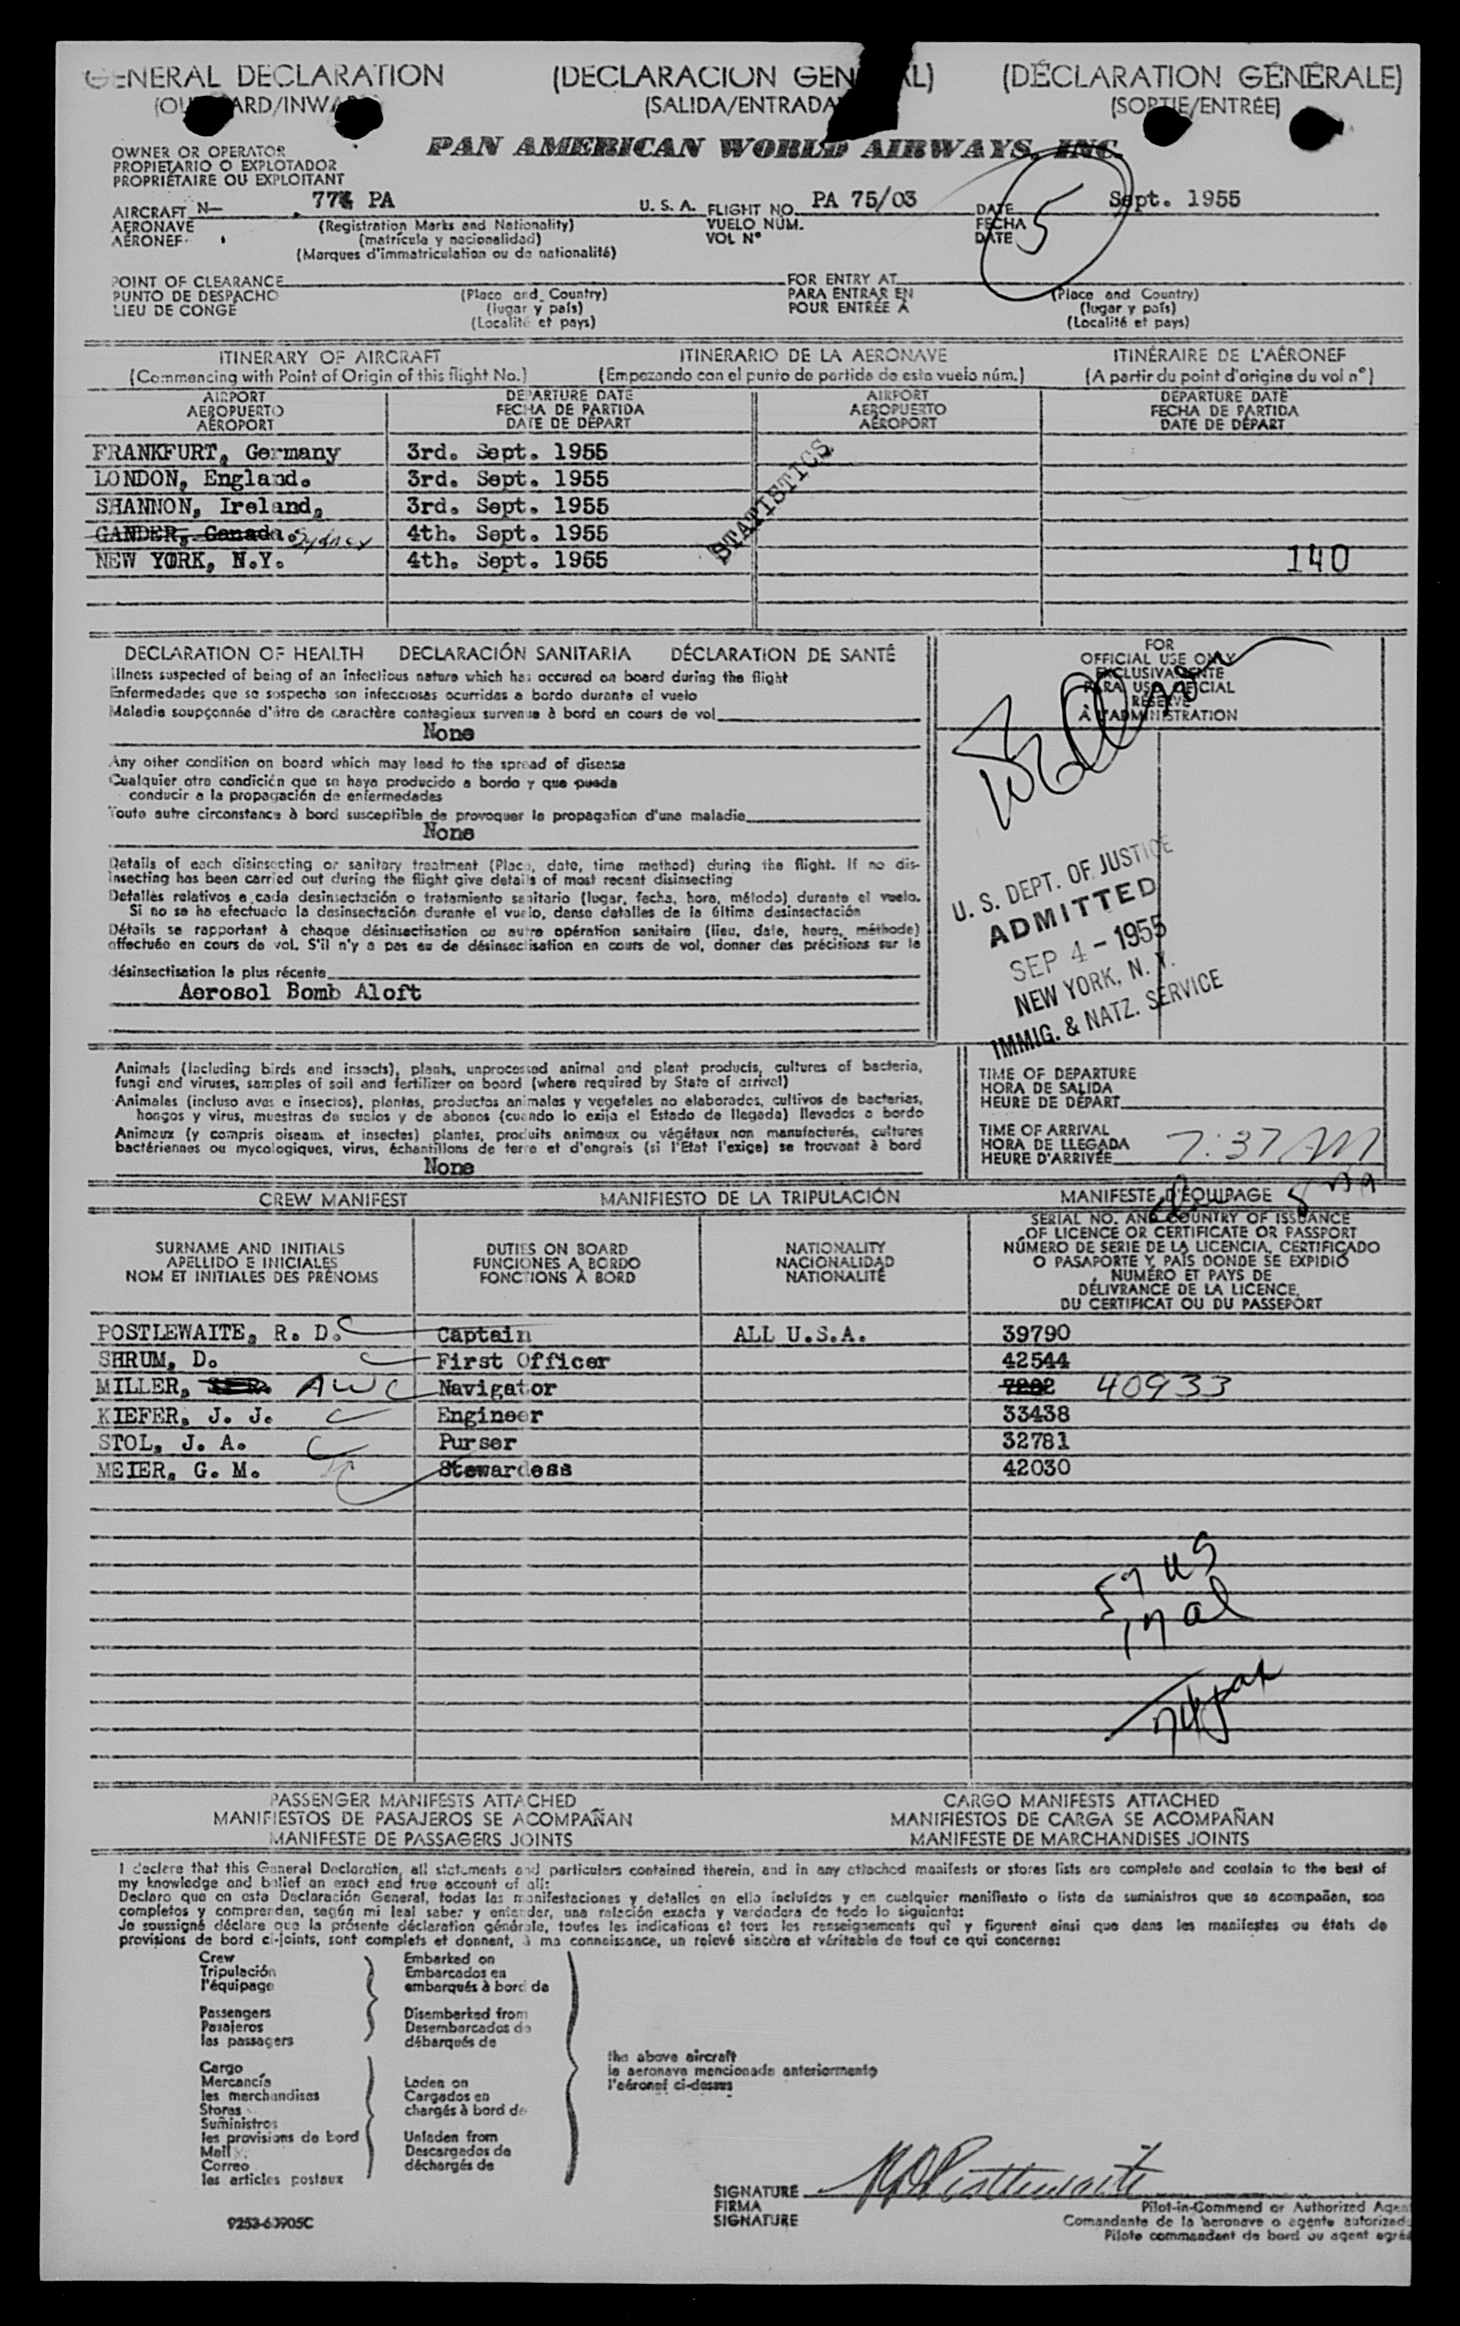 GENERAL DECLARATION (DECLARACION GENERAL) (DÉCLARATION GÉNÉRALE)
(OUTWARD/INWARD) (SALIDA/ENTRADA) (SORTIE/ENTRÉE)
OWNER OR OPERATOR
PROPIETARIO O EXPLOTADOR
PROPRIÉTAIRE OU EXPLOITANT
PAN AMERICAN WORLD AIRWAYS, INC.
AIRCRAFT N- 774 PA U. S. A. FLIGHT NO. PA 75/03 DATE 5 Sept. 1955
AERONAVE (Registration Marks and Nationality) VUELO NÚM. FECHA
AÉRONEF (matrícula y nacionalidad) VOL N° DATE
(Marques d'immatriculation ou de nationalité)
POINT OF CLEARANCE FOR ENTRY AT
PUNTO DE DESPACHO (Place and Country) PARA ENTRAR EN (Place and Country)
LIEU DE CONGÉ (lugar y país) POUR ENTRÉE À (lugar y país)
(Localité et pays) (Localité et pays)
ITINERARY OF AIRCRAFT ITINERARIO DE LA AERONAVE ITINÉRAIRE DE L'AÉRONEF
(Commencing with Point of Origin of this flight No.) (Empezando con el punto de partida de este vuelo núm.) (A partir du point d'origine du vol n°)
AIRPORT DEPARTURE DATE AIRPORT DEPARTURE DATE
AEROPUERTO FECHA DE PARTIDA AEROPUERTO FECHA DE PARTIDA
AÉROPORT DATE DE DÉPART AÉROPORT DATE DE DÉPART
FRANKFURT, Germany 3rd. Sept. 1955
LONDON, England. 3rd. Sept. 1955
SHANNON, Ireland, 3rd. Sept. 1955
GANDER, Canada. Sydney 4th. Sept. 1955
NEW YORK, N.Y. 4th. Sept. 1955 140
STATISTICS
DECLARATION OF HEALTH DECLARACIÓN SANITARIA DÉCLARATION DE SANTÉ
Illness suspected of being of an infectious nature which has occured on board during the flight
Enfermedades que se sospecha son infecciosas ocurridas a bordo durante el vuelo
Maladie soupçonnée d'être de caractère contagieux survenue à bord en cours de vol
None
Any other condition on board which may lead to the spread of disease
Cualquier otra condición que se haya producido a bordo y que pueda
conducir a la propagación de enfermedades
Toute autre circonstance à bord susceptible de provoquer la propagation d'une maladie
None
Details of each disinsecting or sanitary treatment (Place, date, time method) during the flight. If no dis-
insecting has been carried out during the flight give details of most recent disinsecting
Detalles relativos a cada desinsectación o tratamiento sanitario (lugar, fecha, hora, método) durante el vuelo.
Si no se ha efectuado la desinsectación durante el vuelo, dense detalles de la última desinsectación
Détails se rapportant à chaque désinsectisation ou autre opération sanitaire (lieu, date, heure, méthode)
effectuée en cours de vol. S'il n'y a pas eu de désinsectisation en cours de vol, donner des précisions sur la
désinsectisation la plus récente
Aerosol Bomb Aloft
FOR
OFFICIAL USE ONLY
EXCLUSIVAMENTE
PARA USO OFICIAL
RÉSERVÉ
À L'ADMINISTRATION
U. S. DEPT. OF JUSTICE
ADMITTED
SEP 4 - 1955
NEW YORK, N. Y.
IMMIG. & NATZ. SERVICE
Animals (including birds and insects), plants, unprocessed animal and plant products, cultures of bacteria,
fungi and viruses, samples of soil and fertilizer on board (where required by State of arrival)
Animales (incluso aves e insectos), plantas, productos animales y vegetales no elaborados, cultivos de bacterias,
hongos y virus, muestras de suelos y de abonos (cuando lo exija el Estado de llegada) llevados a bordo
Animaux (y compris oiseaux et insectes) plantes, produits animaux ou végétaux non manufacturés, cultures
bactériennes ou mycologiques, virus, échantillons de terre et d'engrais (si l'État l'exige) se trouvant à bord
None
TIME OF DEPARTURE
HORA DE SALIDA
HEURE DE DÉPART
TIME OF ARRIVAL
HORA DE LLEGADA
HEURE D'ARRIVÉE 7:37 AM
CREW MANIFEST MANIFIESTO DE LA TRIPULACIÓN MANIFESTE D'ÉQUIPAGE
SURNAME AND INITIALS DUTIES ON BOARD NATIONALITY
APELLIDO E INICIALES FUNCIONES A BORDO NACIONALIDAD
NOM ET INITIALES DES PRÉNOMS FONCTIONS À BORD NATIONALITÉ
SERIAL NO. AND COUNTRY OF ISSUANCE
OF LICENCE OR CERTIFICATE OR PASSPORT
NÚMERO DE SERIE DE LA LICENCIA, CERTIFICADO
O PASAPORTE Y PAÍS DONDE SE EXPIDIÓ
NUMÉRO ET PAYS DE
DÉLIVRANCE DE LA LICENCE,
DU CERTIFICAT OU DU PASSEPORT
POSTLEWAITE, R. D. Captain ALL U.S.A. 39790
SHRUM, D. First Officer 42544
MILLER, AWC Navigator 7202 40933
KIEFER, J. J. Engineer 33438
STOL, J. A. Purser 32781
MEIER, G. M. Stewardess 42030
57 US
17 al
PASSENGER MANIFESTS ATTACHED CARGO MANIFESTS ATTACHED
MANIFIESTOS DE PASAJEROS SE ACOMPAÑAN MANIFIESTOS DE CARGA SE ACOMPAÑAN
MANIFESTE DE PASSAGERS JOINTS MANIFESTE DE MARCHANDISES JOINTS
I declare that this General Declaration, all statements and particulars contained therein, and in any attached manifests or stores lists are complete and contain to the best of
my knowledge and belief an exact and true account of all:
Declaro que en esta Declaración General, todas las manifestaciones y detalles en ella incluídos y en cualquier manifiesto o lista de suministros que se acompañen, son
completos y comprenden, según mi leal saber y entender, una relación exacta y verdadera de todo lo siguiente:
Je soussigné déclare que la présente déclaration générale, toutes les indications et tous les renseignements qui y figurent ainsi que dans les manifestes ou états de
provisions de bord ci-joints, sont complets et donnent, à ma connaissance, un relevé sincère et véritable de tout ce qui concerne:
Crew Embarked on
Tripulación Embarcados en
l'équipage embarqués à bord de
Passengers Disembarked from
Pasajeros Desembarcados de
les passagers débarqués de
the above aircraft
la aeronave mencionada anteriormente
l'aéronef ci-dessus
Cargo
Mercancía Laden on
les marchandises Cargados en
Stores chargés à bord de
Suministros
les provisions de bord Unladen from
Mail Descargados de
Correo déchargés de
les articles postaux
SIGNATURE R D Postlewaite
FIRMA Pilot-in-Command or Authorized Agent
SIGNATURE Comandante de la aeronave o agente autorizado
Pilote commandant de bord ou agent agréé
9253-60905C